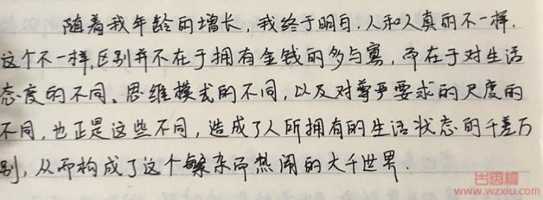 随着我年龄的增长，我终于明白，人和人真的不一样．
这个不一样，区别并不在于拥有金钱的多与寡，而在于对生活
态度的不同、思维模式的不同，以及对尊严要求的尺度的
不同，也正是这些不同，造成了人所拥有的生活状态的千差万
别，从而构成了这个繁杂而热闹的大千世界．
吾爱漏网
www.wzxiu.com